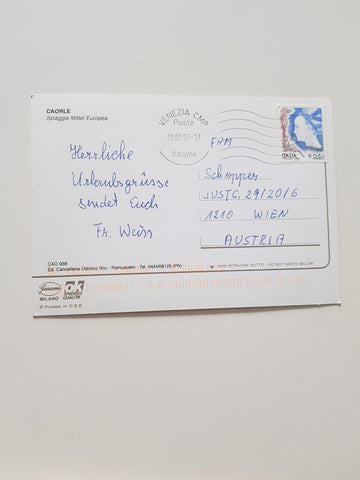 CAORLE
Spiaggia Mittel Europea
VENEZIA CMP
Poste
30.07.97-17
Italiane
ITALIA
€ 0,65
Herrliche
Urlaubsgrüsse
sendet Euch
Fr. Weiss
FAM
Schopper
JUSTG. 29/20/6
1210 WIEN
AUSTRIA
CAO 938
Ed. Cancelleria Odorico Snc - Ramuscello - Tel. 0434/68129 (PN)
NON SCRIVERE SOTTO - DO NOT WRITE BELOW
MILANO
OK
SPECIFICI
QUALITA'
© Printed in C.E.E.